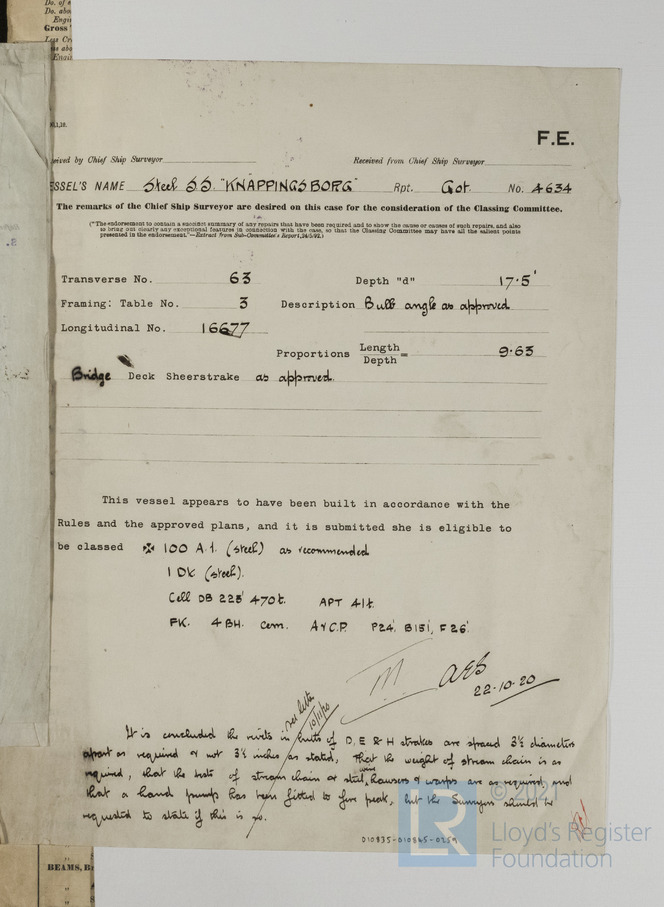 Do. of
Do. abo
Engi
Gross
Less Cr
Engin
F.E.
eived by Chief Ship Surveyor
Received from Chief Ship Surveyor
ESSEL'S NAME Steel SS "KNAPPINGSBORG" Rpt. Got. No. 4634
The remarks of the Chief Ship Surveyor are desired on this case for the consideration of the Classing Committee.
("The endorsement to contain a succinct summary of any repairs that have been required and to show the cause or causes of such repairs, and also
to bring out clearly any exceptional features in connection with the case, so that the Classing Committee may have all the salient points
presented in the endorsement."—Extract from Sub-Committee's Report, 24/5/92.)
Transverse No. 63 Depth "d" 17.5'
Framing: Table No. 3 Description Bulb angle as approved
Longitudinal No. 16677
Proportions Length
Depth = 9.63
Bridge Deck Sheerstrake as approved.
This vessel appears to have been built in accordance with the
Rules and the approved plans, and it is submitted she is eligible to
be classed ✠ 100 A.1. (steel) as recommended
1 DK (steel).
Cell DB 225' 470t. APT 41t.
FK. 4 BH. Cem. A & C.P. P24' B151', F26'.
22.10.20
see letter
10/11/20
It is concluded the rivets in butts of D, E & H strakes are spaced 3½ diameters
apart as required & not 3½ inches as stated, that the weight of stream chain is as
required, that the tests of stream chain or steel wire, hawsers & warps are as required and
that a hand pump has been fitted to fore peak, but the Surveyors should be
requested to state if this is so.
010835-010865-0259
© 2021
LR
Lloyd's Register
Foundation
BEAMS, B